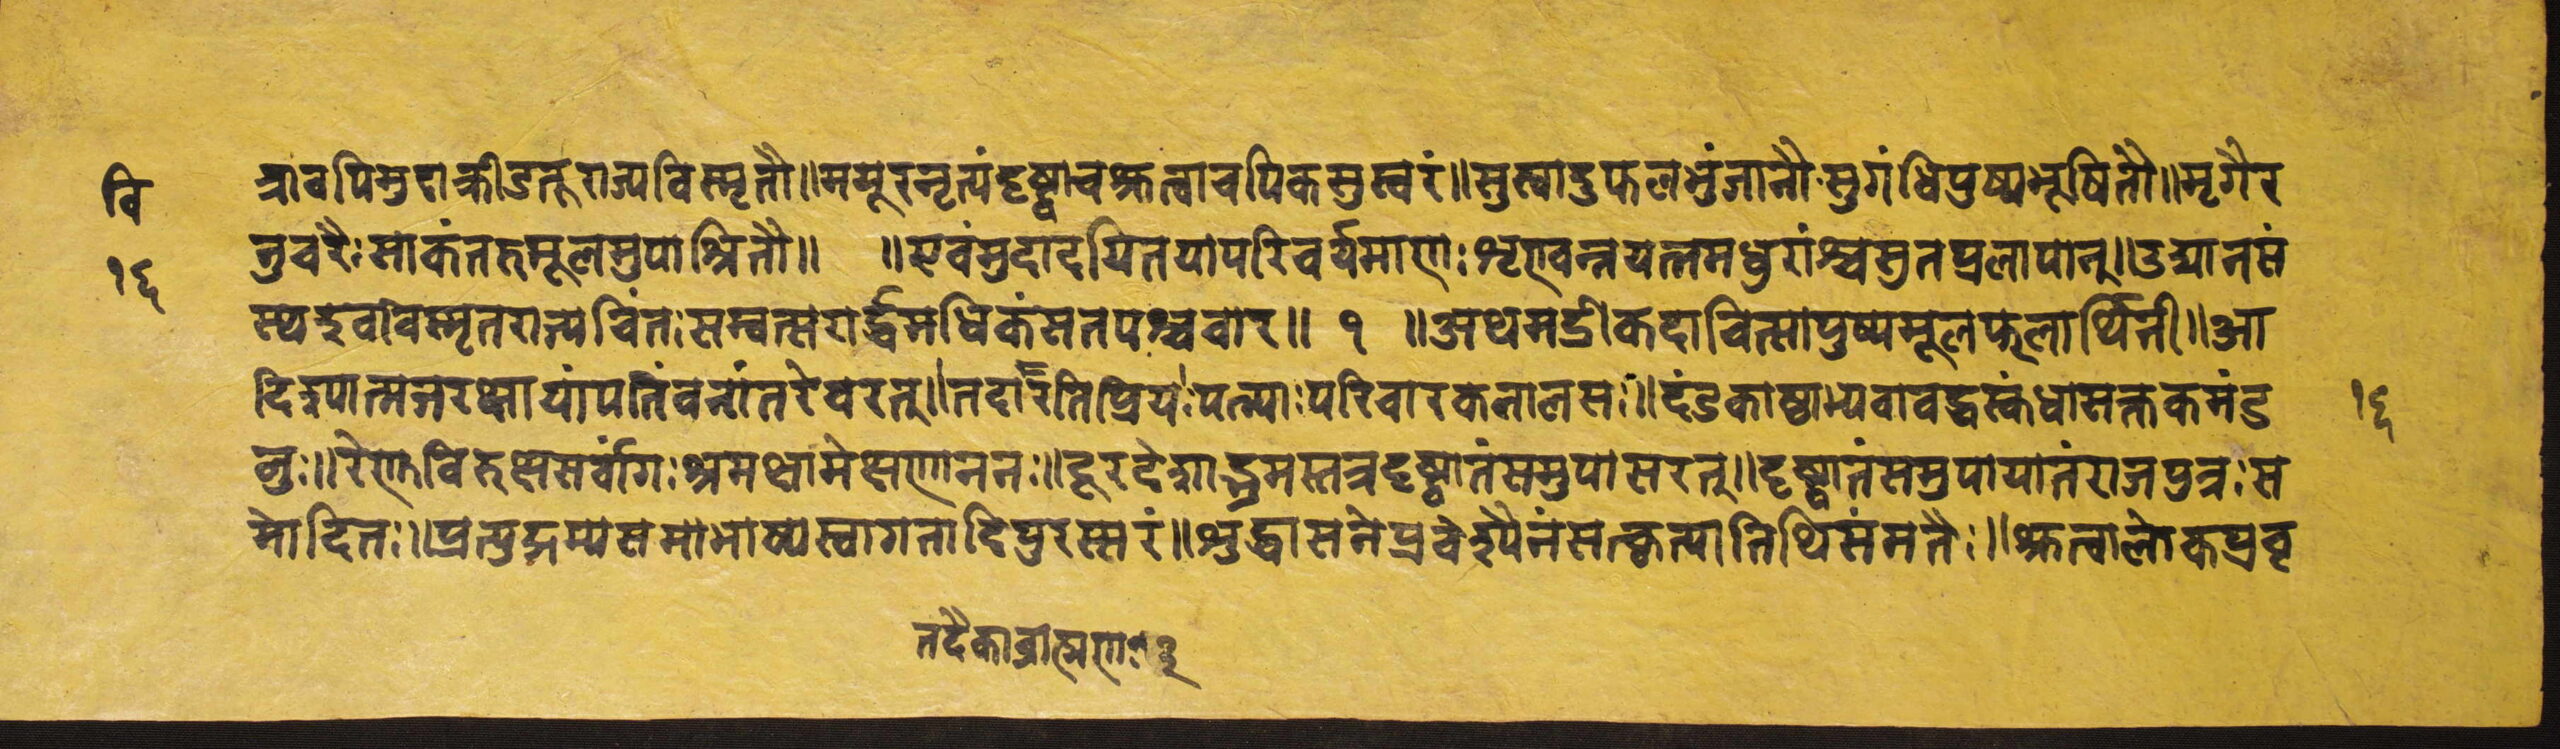 वि
१६
त्रावपिमुदाक्रीडतूराज्यविस्मृतौ॥मयूरनृत्यंदृष्ट्वाचश्रुत्वाचपिकसुस्वरं॥सुस्वादुफलभुंजानौसुगंधिपुष्पभूषितौ॥मृगैर
नुचरैःसाकंतरुमूलमुपाश्रितौ॥ ॥एवंमुदादयितयापरिचर्यमाणःशृण्वन्नयत्नमधुरांश्चसुतप्रलापान्॥उद्यानसं
स्थइवविस्मृतराज्यचिंतःसम्वत्सरार्द्धमधिकंसतपश्चचार॥ १ ॥अथमद्रीकदाचित्सापुष्पमूलफलार्थिनी॥आ
दिश्यात्मजरक्षायांपतिंवनांतरेचरत्॥तदारतिप्रियःपत्न्याःपरिचारकलालसः॥दंडकाष्ठाभ्यवावद्धस्कंधासक्तकमंड
लुः॥रेणुविरुक्षसर्वांगःश्रमक्षामेक्षणाननः॥दूरदेशाद्भ्रमस्तत्रदृष्ट्वातंसमुपासरत्॥दृष्ट्वातंसमुपायातंराजपुत्रःस
मोदितः॥प्रत्युद्गम्यसमाभाष्यस्वागतादिपुरस्सरं॥शुद्धासनेप्रवेश्यैनंसत्कृत्यातिथिसंमतैः॥श्रुत्वालोकप्रवृ
१६
तदैकाब्राह्मणः ३